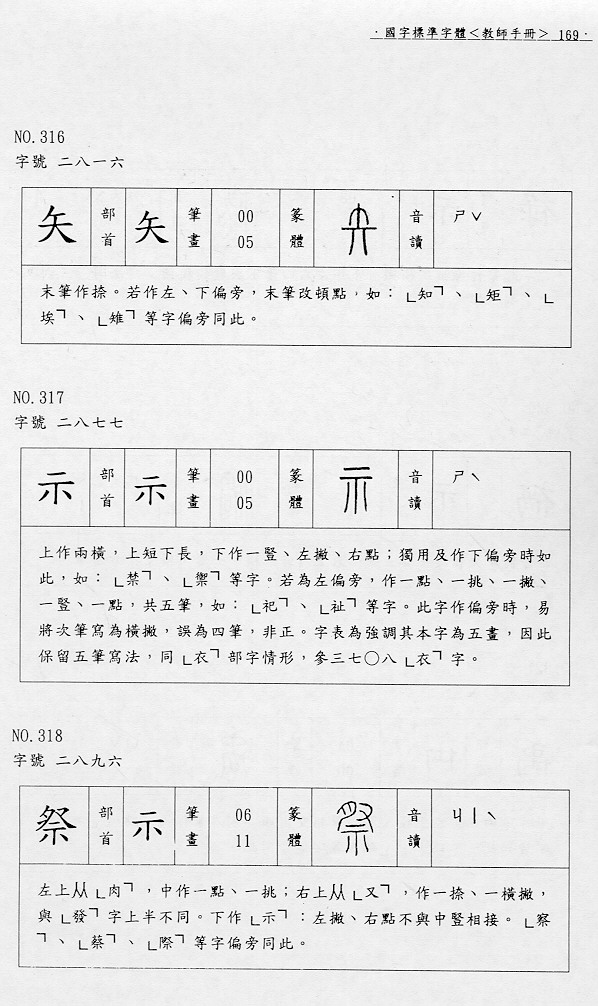 ·國字標準字體<教師手冊> 169·
NO.316
字號 二八一六
矢 部首 矢 筆畫 00 05 篆體 音讀 ㄕˇ
末筆作捺。若作左、下偏旁,末筆改頓點,如:「知」、「矩」、「
埃」、「雉」等字偏旁同此。
NO.317
字號 二八七七
示 部首 示 筆畫 00 05 篆體 音讀 ㄕˋ
上作兩橫,上短下長,下作一豎、左撇、右點;獨用及作下偏旁時如
此,如:「禁」、「禦」等字。若為左偏旁,作一點、一挑、一撇、
一豎、一點,共五筆,如:「祀」、「祉」等字。此字作偏旁時,易
將次筆寫為橫撇,誤為四筆,非正。字表為強調其本字為五畫,因此
保留五筆寫法,同「衣」部字情形,參三七〇八「衣」字。
NO.318
字號 二八九六
祭 部首 示 筆畫 06 11 篆體 音讀 ㄐㄧˋ
左上从「肉」,中作一點、一挑;右上从「又」,作一捺、一橫撇,
與「發」字上半不同。下作「示」:左撇、右點不與中豎相接。「察
」、「蔡」、「際」等字偏旁同此。